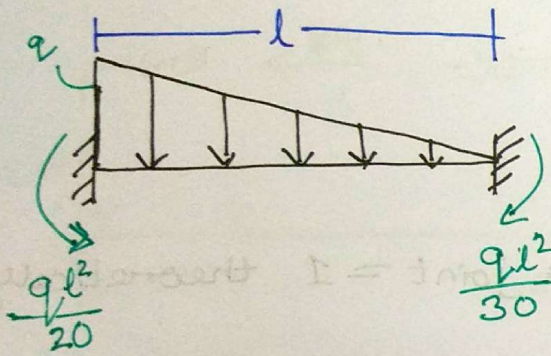 l
q
ql²/20
ql²/30